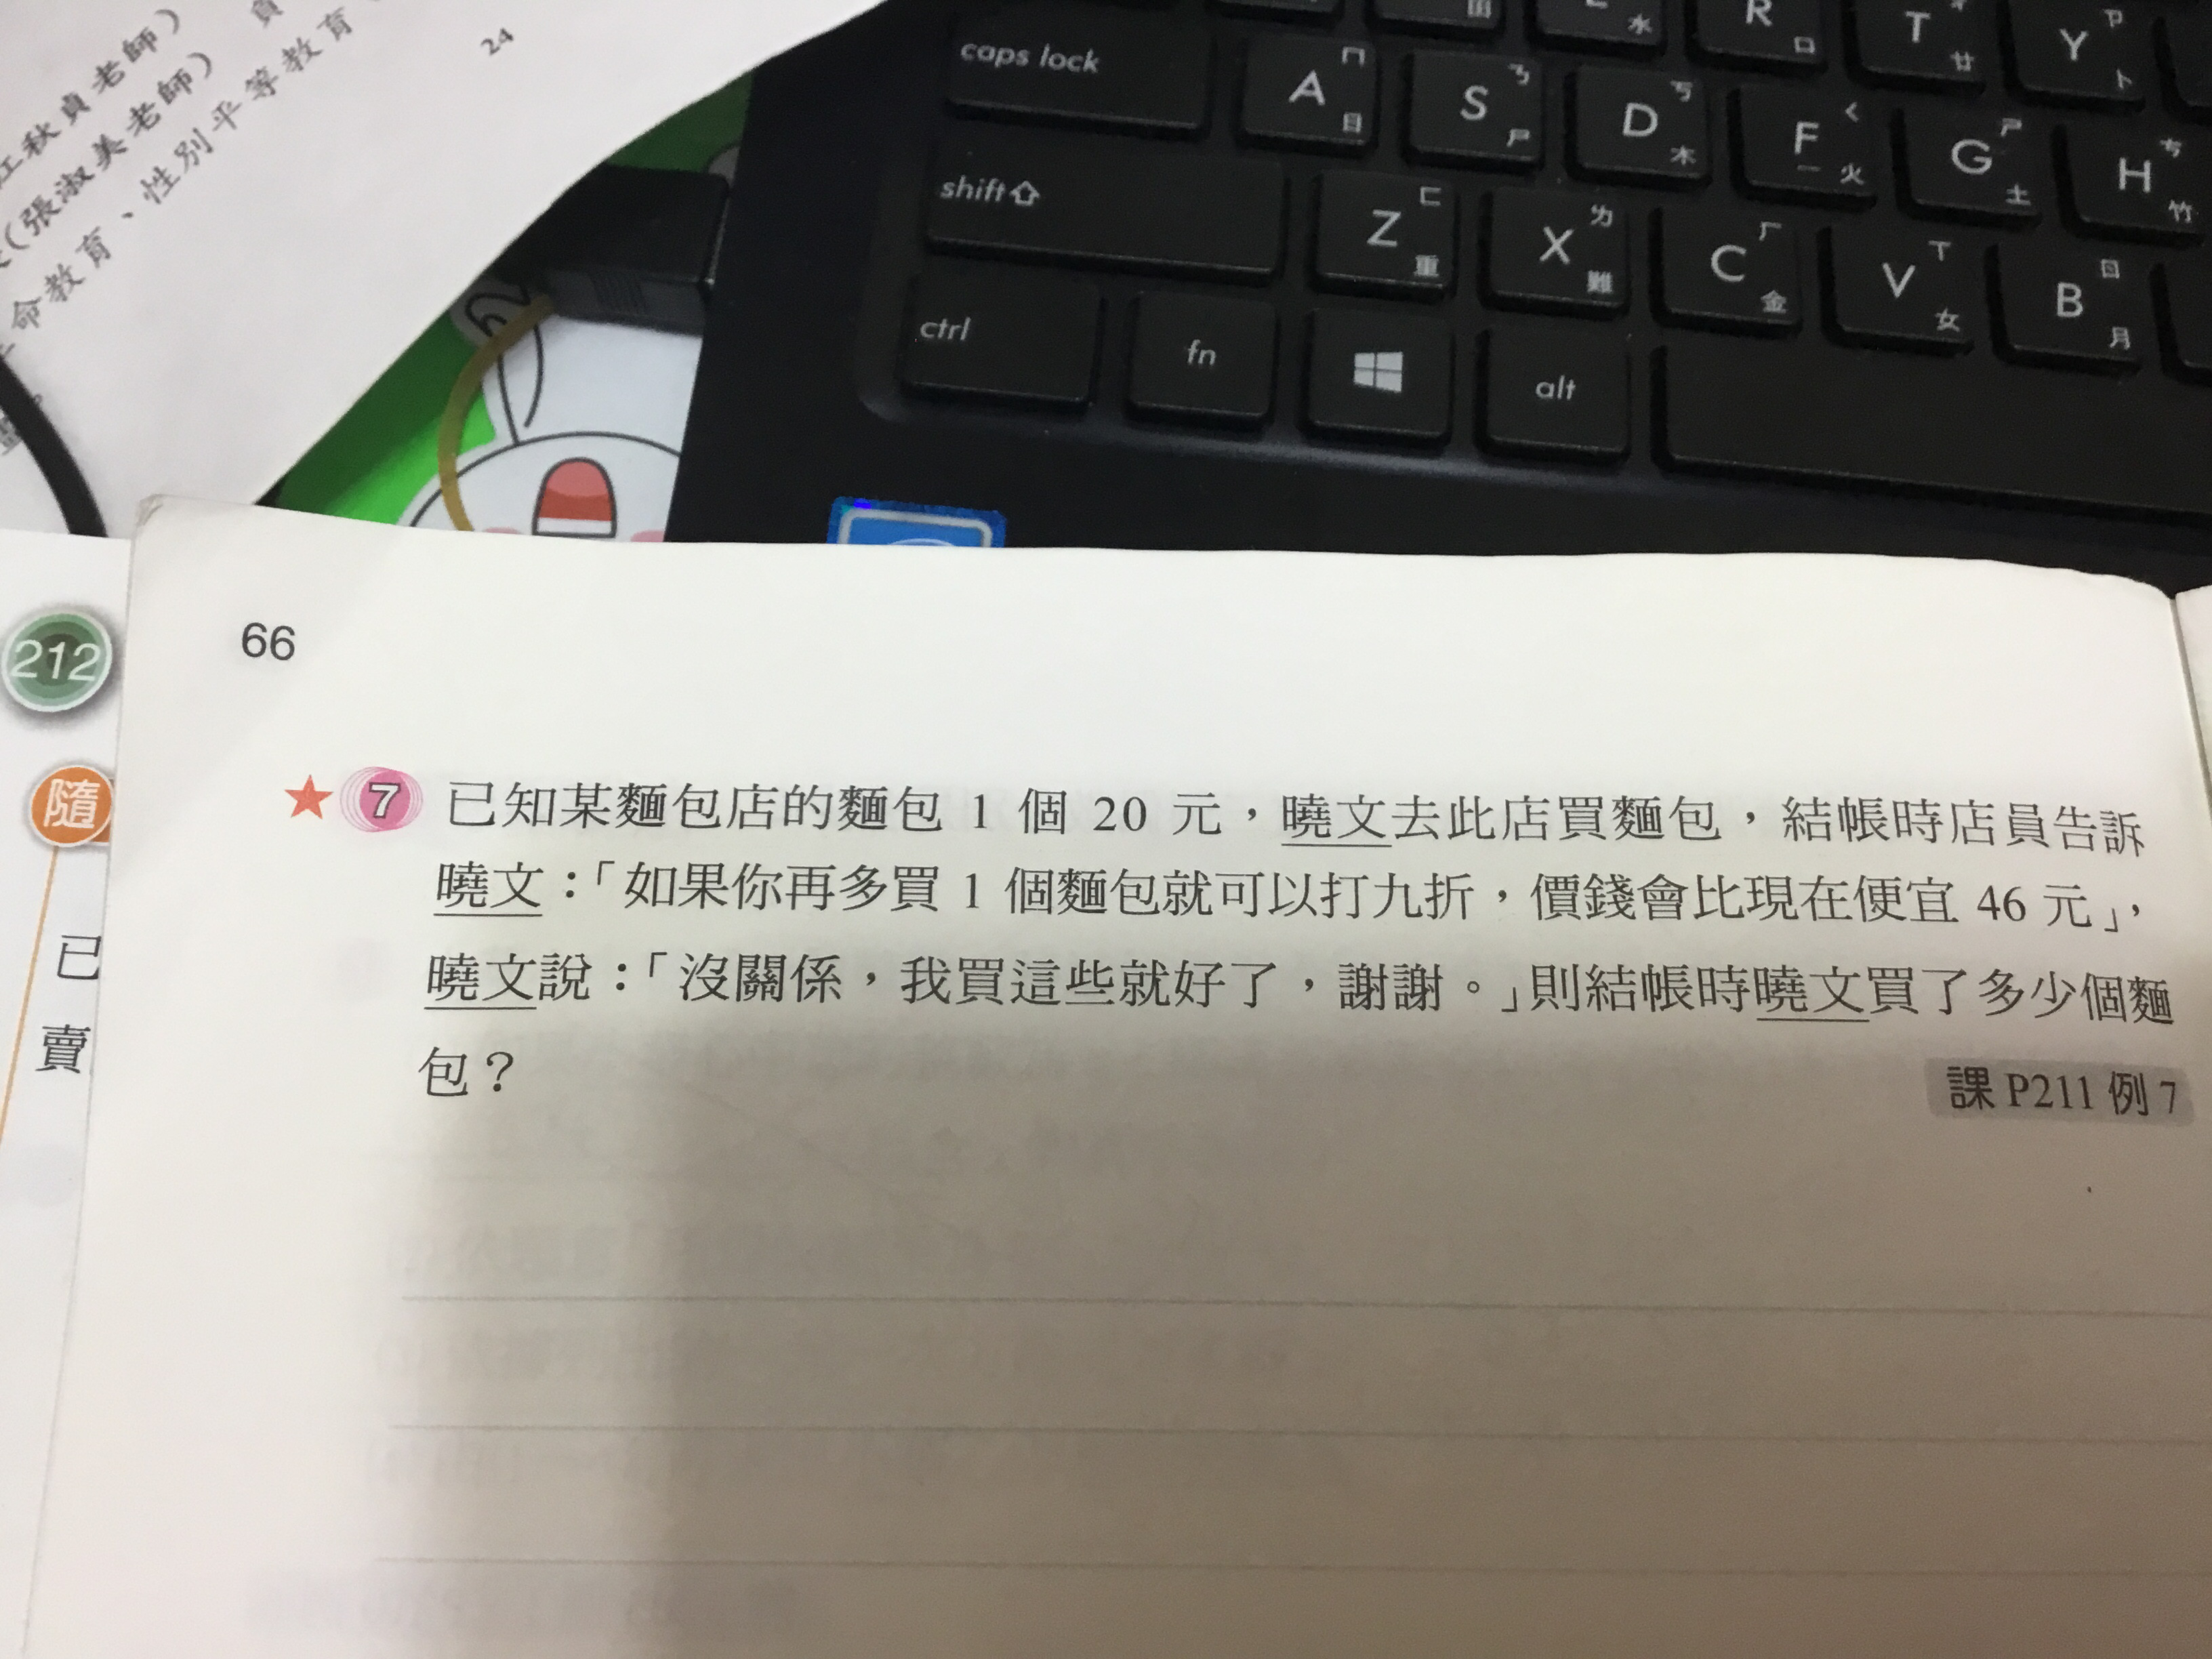 江秋貞老師)
(張淑美老師)
命教育、性別平等教育
24
caps lock
A ㄇ 日
S ㄋ 尸
D ㄎ 木
F ㄑ 火
G ㄕ 土
H ㄘ 竹
R 口
T 廿
Y ㄗ 卜
田
水
shift
Z ㄈ 重
X ㄌ 難
C ㄏ 金
V ㄒ 女
B ㄖ 月
ctrl
fn
alt
212
隨
已
賣
66
7 已知某麵包店的麵包 1 個 20 元，曉文去此店買麵包，結帳時店員告訴
曉文：「如果你再多買 1 個麵包就可以打九折，價錢會比現在便宜 46 元」，
曉文說：「沒關係，我買這些就好了，謝謝。」則結帳時曉文買了多少個麵
包？
課 P211 例 7